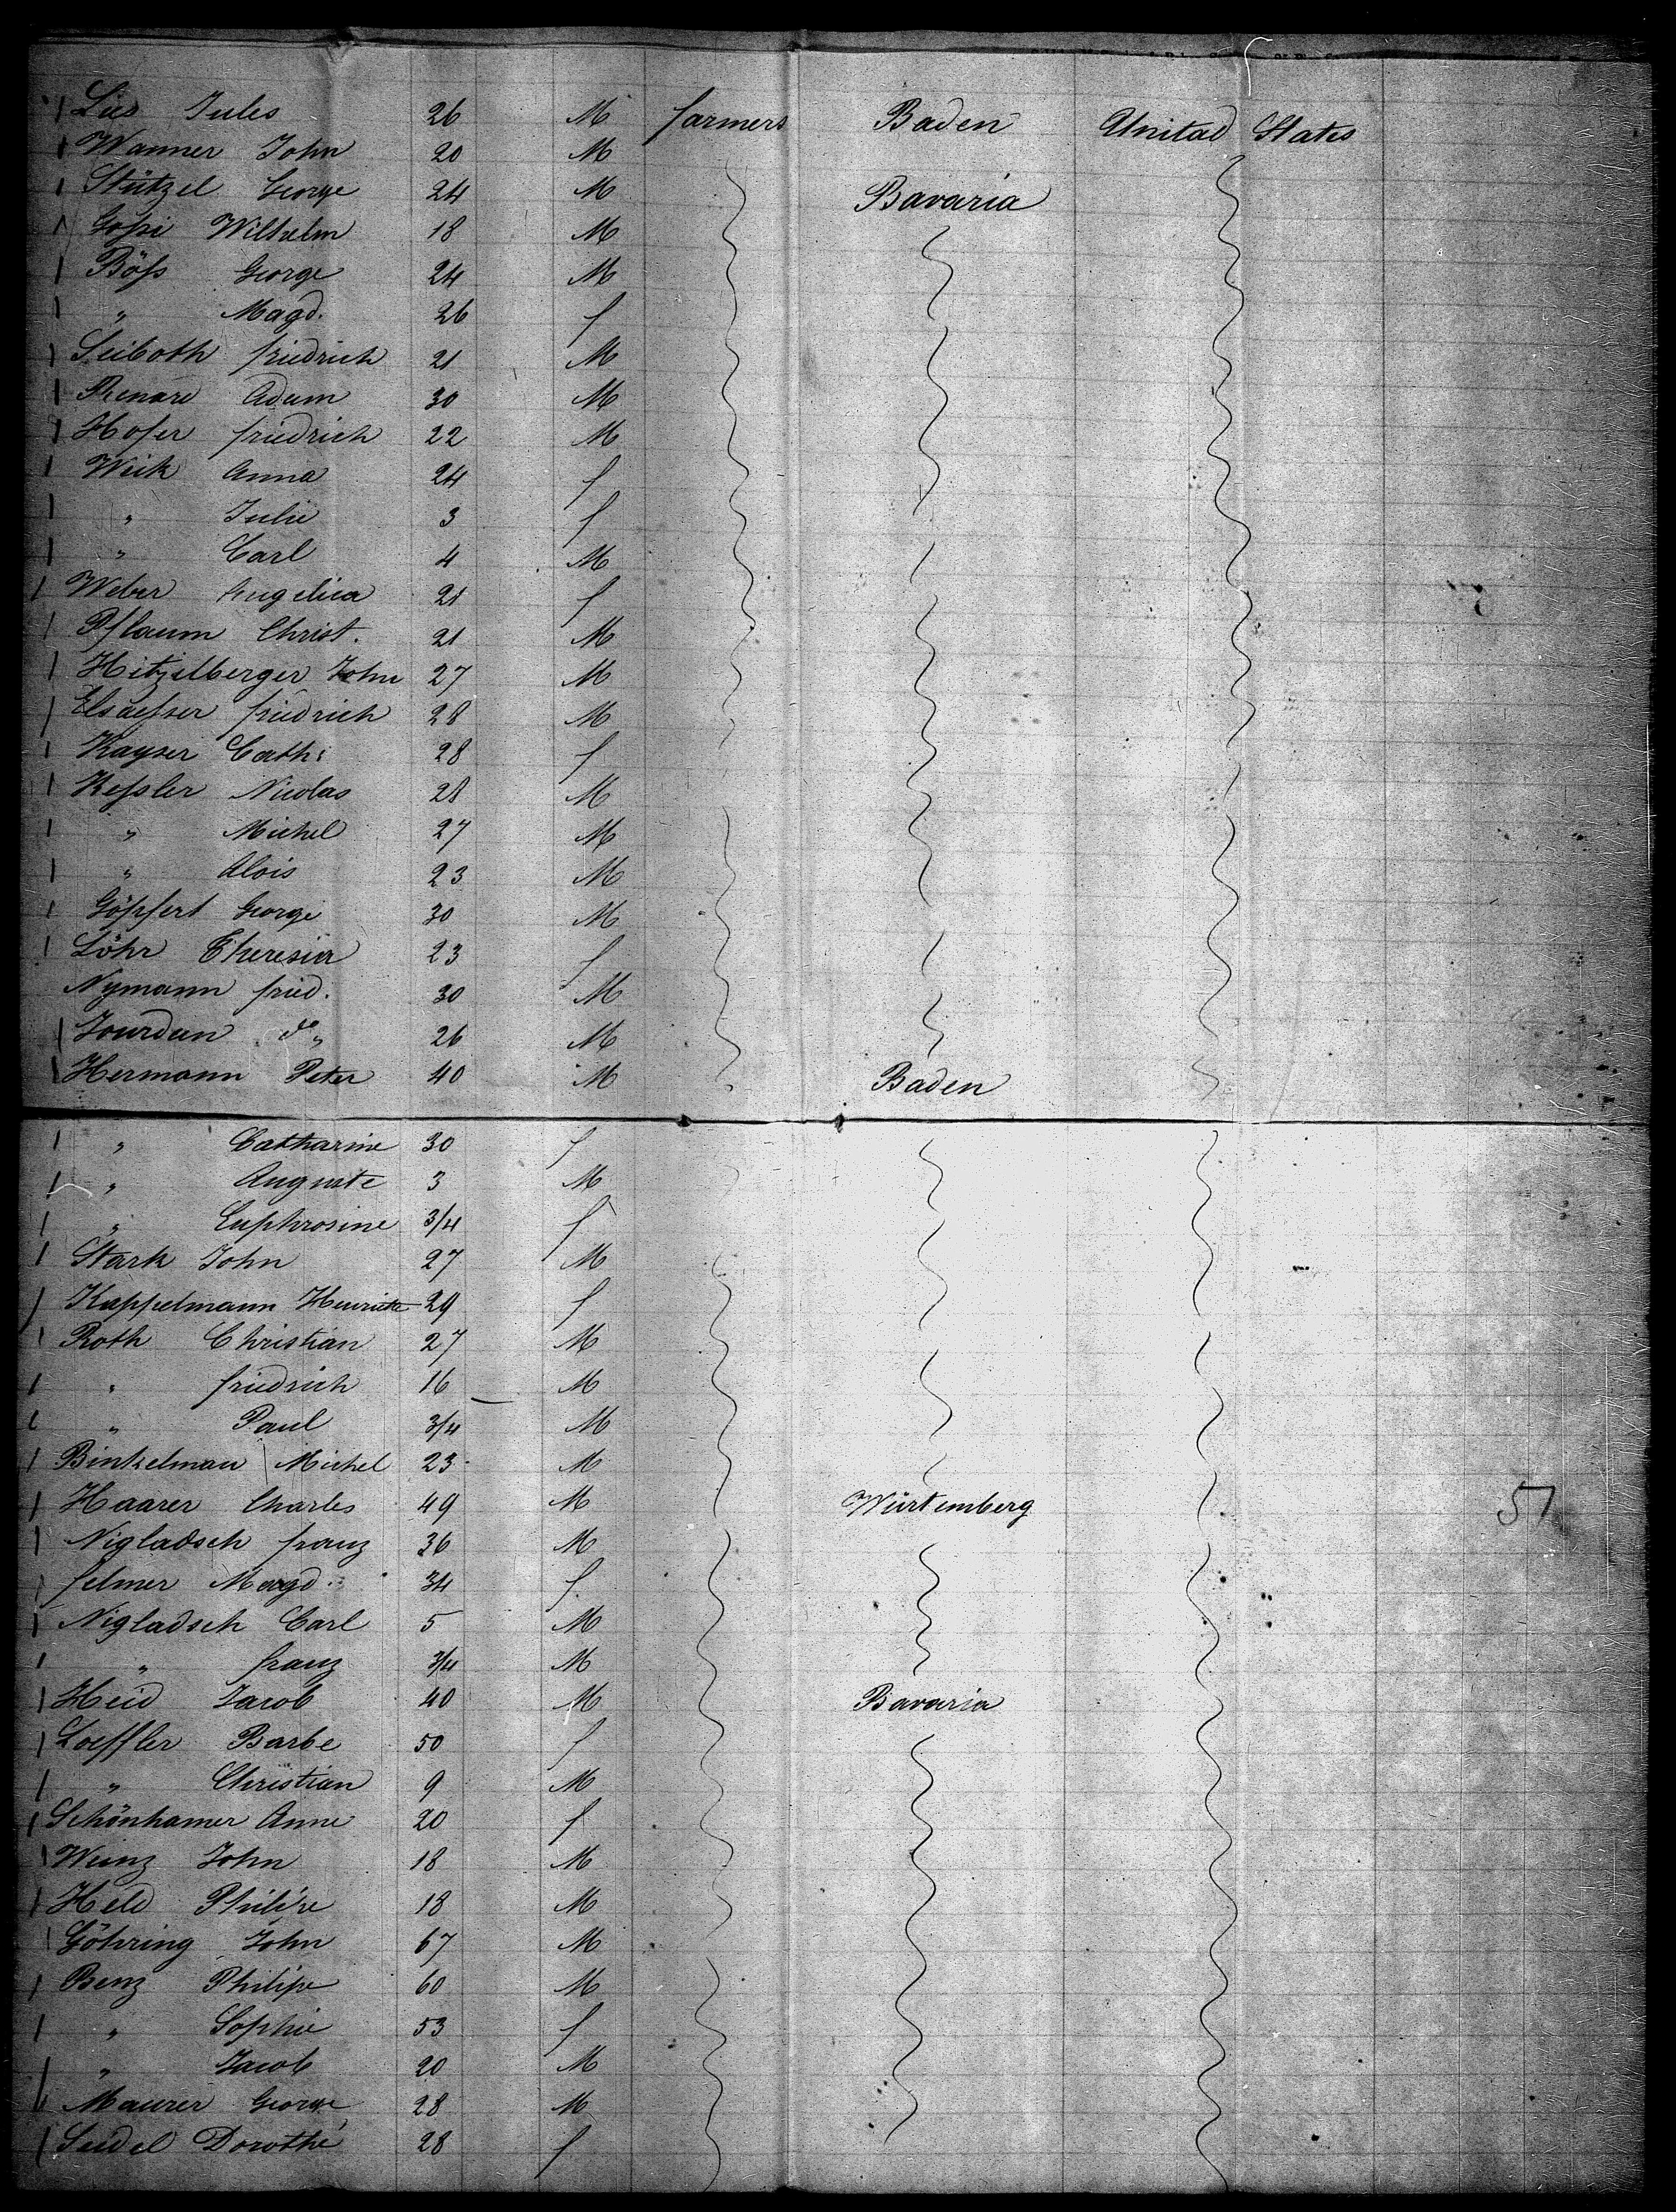 Lies Jules 26 M farmers Baden Unitad States
Wanner John 20 M
Stützel George 24 M Bavaria
Wilhelm 18 M
Böſs George 24 M
" Magd. 26 f
Seiboth friedrich 21 M
Renard Adam 30 M
Hofer friedrich 22 M
Weik Anna 24 f
" Julie 3 f
" Carl 4 M
Weber Angelica 21 f
Pflaum Christ. 21 M
Hitzelberger John 27 M
Elsaeſser friedrich 28 M
Kayser Cath: 28 f
Keſsler Nicolas 28 M
" Michel 27 M
" Alois 23 M
Göpfert George 30 M
Löhr Theresia 23 f
Nymann fried. 30 M
Jourdan do " 26 M
Hermann Peter 40 M Baden
" Catharine 30 f
" Auguste 3 M
" Euphrosine 3/4 f
Stark John 27 M
Kappelmann Henriette 29 f
Roth Christian 27 M
" friedrich 16 M
" Paul 3/4 M
Binkelman Michel 23 M
Haarer Charles 49 M Würtemberg 51
Nigladsch franz 36 M
felmer Magd. 34 f
Nigladsch Carl 5 M
" franz 3/4 M
Heid Jacob 40 M Bavaria
Loeffler Barbe 50 f
" Christian 9 M
Schönhamer Anne 20 f
Weinz John 18 M
Held Philipe 18 M
Göhring John 67 M
Benz Philipe 60 M
" Sophie 53 f
" Jacob 20 M
Maurer George 28 M
Seidel Dorothé 28 f